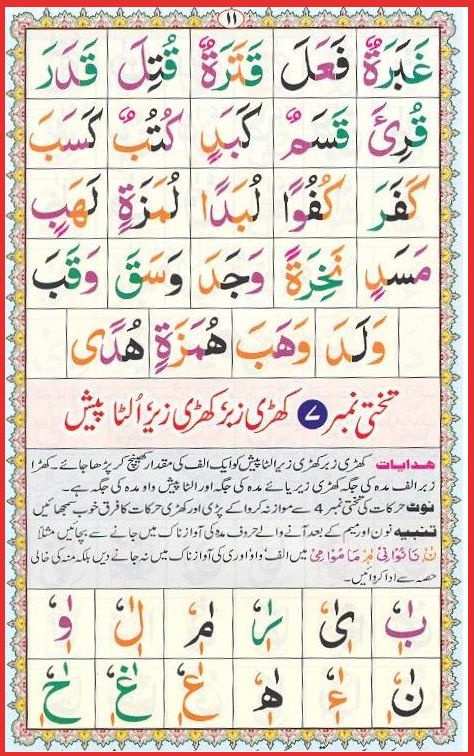 ١١
غَبَرَةٌ فَعَلَ قَتَرَةٌ قُتِلَ قَدَرَ
قُرِئَ قَسَمٌ كَبَدٍ كُتُبٌ كَسَبَ
كَفَرَ كُفُوًا لُبَدًا لُمَزَةٍ لَهَبٍ
مَسَدٍ نَخِرَةً وَجَدَ وَسَقَ وَقَبَ
وَلَدَ وَهَبَ هُمَزَةٍ هُدًى
تختی نمبر ۷ کھڑی زبر کھڑی زیر اُلٹا پیش
ھدایات کھڑی زبر کھڑی زیر الٹا پیش کو ایک الف کی مقدار کھینچ کر پڑھا جائے۔ کھڑا
زبر الف مدہ کی جگہ کھڑی زیر یائے مدہ کی جگہ اور الٹا پیش واو مدہ کی جگہ ہے۔
نوٹ حرکات کی تختی نمبر 4 سے موازنہ کروا کے پڑی اور کھڑی حرکات کا فرق خوب سمجھائیں
تنبیہ نون اور میم کے بعد آنے والے حروف مدہ کی آواز ناک میں جانے سے بچائیں مثلاً
نَا نُوْا نِیْ مَا مُوْا مِیْ میں الف واؤ اور ی کی آواز ناک میں نہ جانے دیں بلکہ منہ کی خالی
حصہ سے ادا کروائیں۔
بٰ یٰ رٰ مٰ لٰ وٰ
نٰ ءٰ هٰ عٰ غٰ حٰ